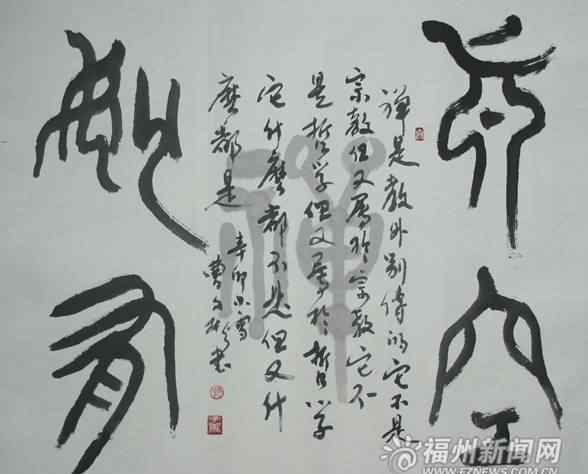 真空
禪是教外别傳的它不是
宗教但又属於宗教它不
是哲学但又属於哲学
它什麽都不是但又什
麽都是
辛卯小雪
妙有
禪
福州新闻网
WWW.FZNEWS.COM.CN